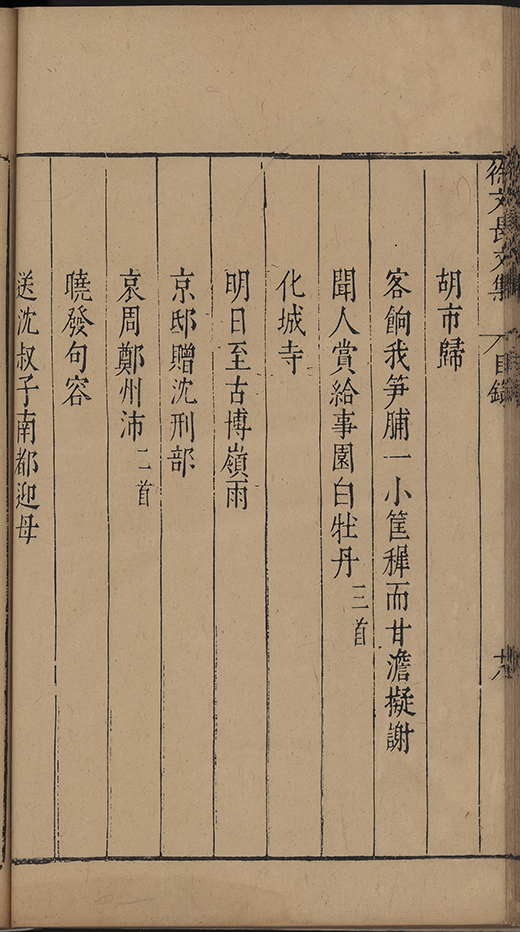 徐文長文集
目錄
胡市歸
客餉我笋脯一小筐稺而甘澹擬謝
聞人賞給事園白牡丹三首
化城寺
明日至古博嶺雨
京邸贈沈刑部
哀周鄭州沛二首
曉發句容
送沈叔子南都迎母